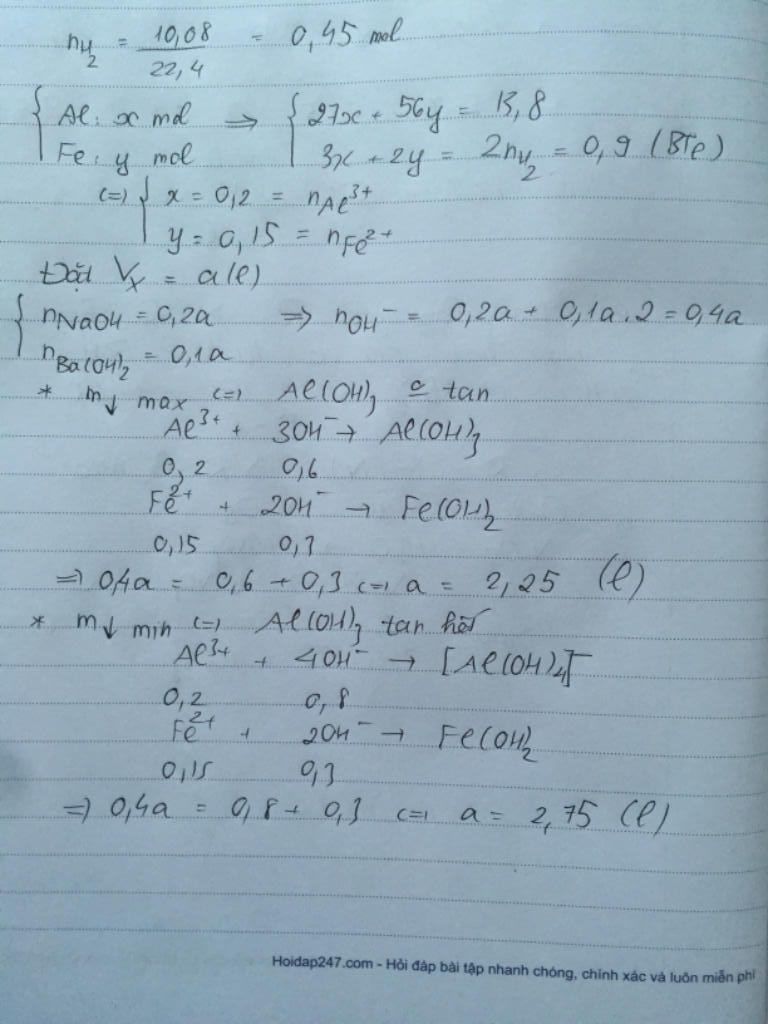 nH2 = 10,08/22,4 = 0,45 mol
{ Al: x mol => { 27x + 56y = 13,8
Fe: y mol 3x + 2y = 2nH2 = 0,9 (BTe)
(=) { x = 0,2 = nAl3+
y = 0,15 = nFe2+
Đặt Vx = a(l)
{ nNaOH = 0,2a => nOH- = 0,2a + 0,1a.2 = 0,4a
nBa(OH)2 = 0,1a
* m↓ max (=) Al(OH)3 c tan
Al3+ + 3OH- → Al(OH)3
0,2 0,6
Fe2+ + 2OH- → Fe(OH)2
0,15 0,3
=> 0,4a = 0,6 + 0,3 (=) a = 2,25 (l)
* m↓ min (=) Al(OH)3 tan hết
Al3+ + 4OH- → [Al(OH)4]-
0,2 0,8
Fe2+ + 2OH- → Fe(OH)2
0,15 0,3
=> 0,4a = 0,8 + 0,3 (=) a = 2,75 (l)
Hoidap247.com - Hỏi đáp bài tập nhanh chóng, chính xác và luôn miễn phí